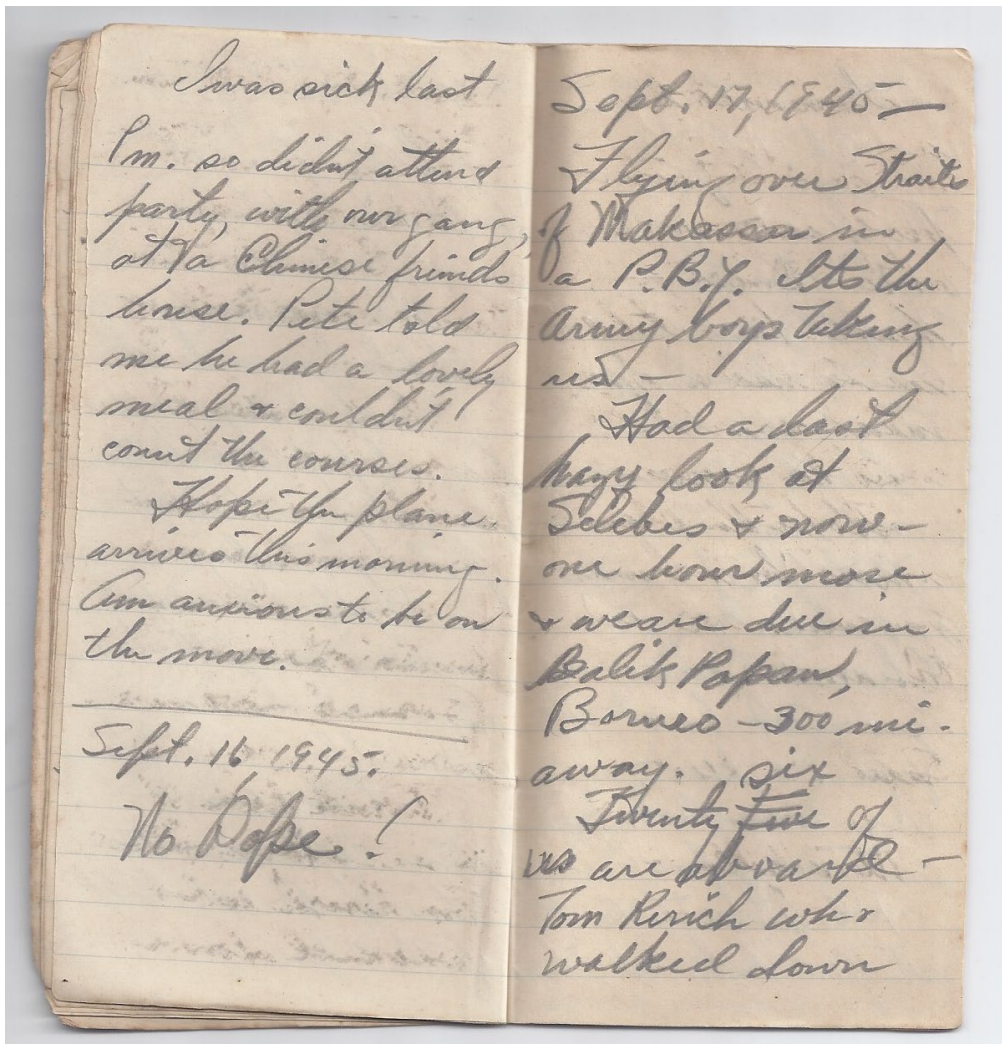 I was sick last
Pm. so didn't attend
party, with our gang,
at a Chinese friends
house. Pete told
me he had a lovely
meal & couldn't
count the courses.
Hope the plane
arrives this morning.
Am anxious to be on
the move.
Sept. 16, 1945.
No Dope!
Sept. 17, 1945 —
Flying over Straits
of Makassar in
a P.B.Y. Its the
Army boys taking
us —
Had a last
hazy look at
Selebes & now —
one hour more
& we are due in
Balik Papan,
Borneo — 300 mi.
away.
six
Twenty Five of
us are aboard —
Tom Rerich who
walked down